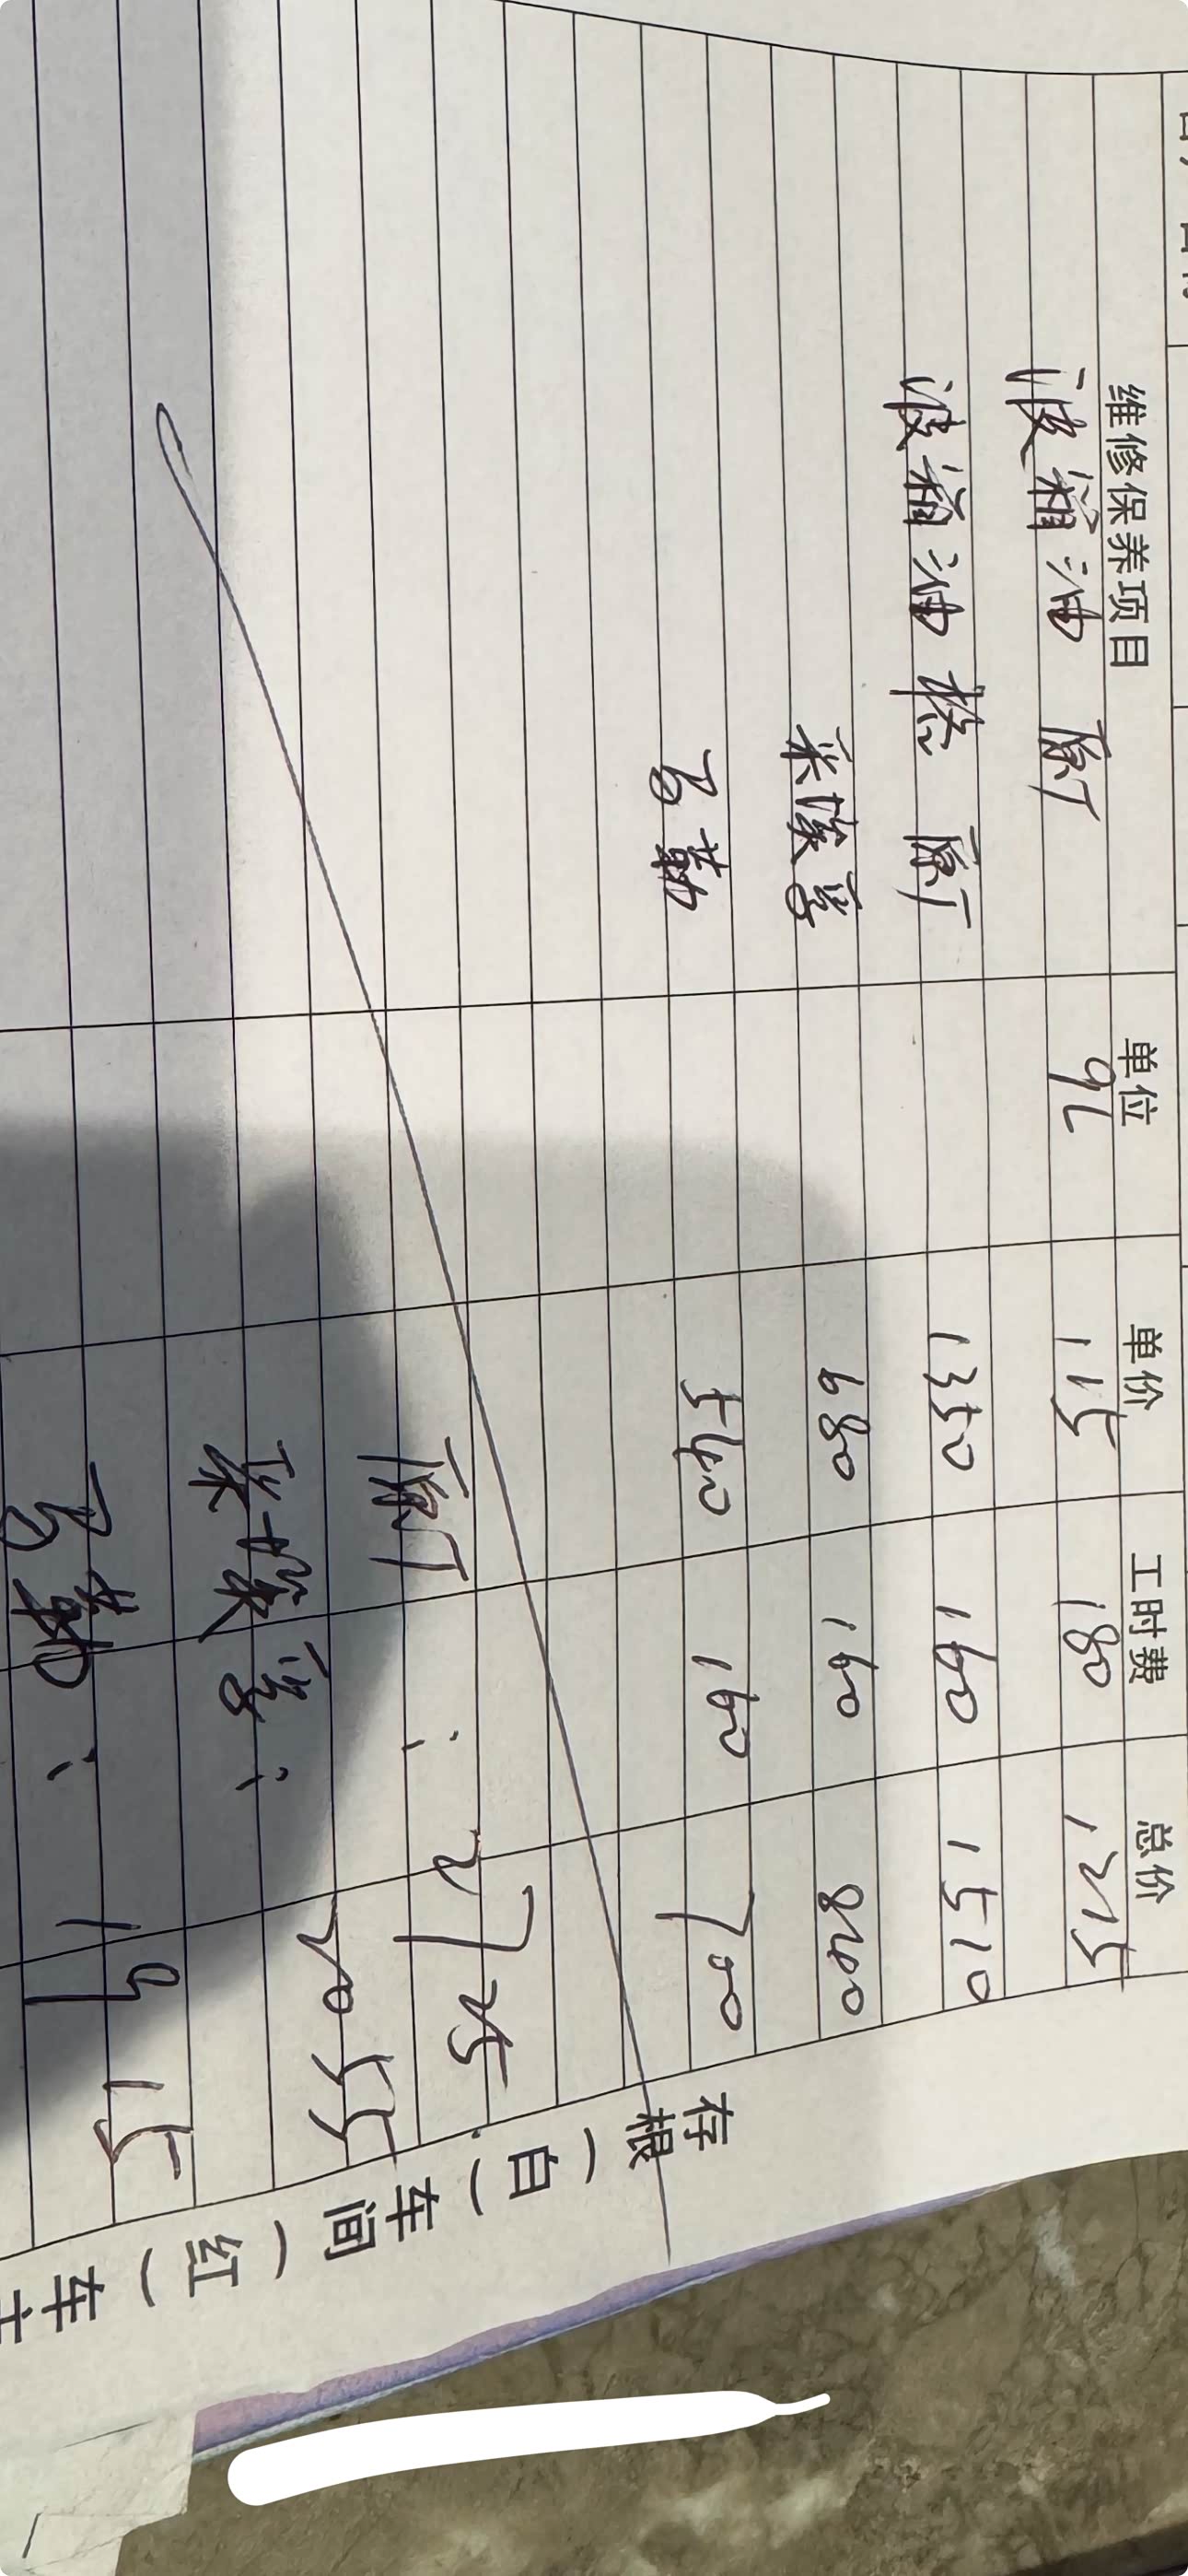 维修保养项目 单位 单价 工时费 总价
波箱油 原厂 9L 115 180 1215
波箱油格 原厂 1350 160 1510
采埃孚 680 160 840
马勒 540 160 700
原厂: 2725
采埃孚: 2055
马勒: 1915
存根(白)车间(红)车主